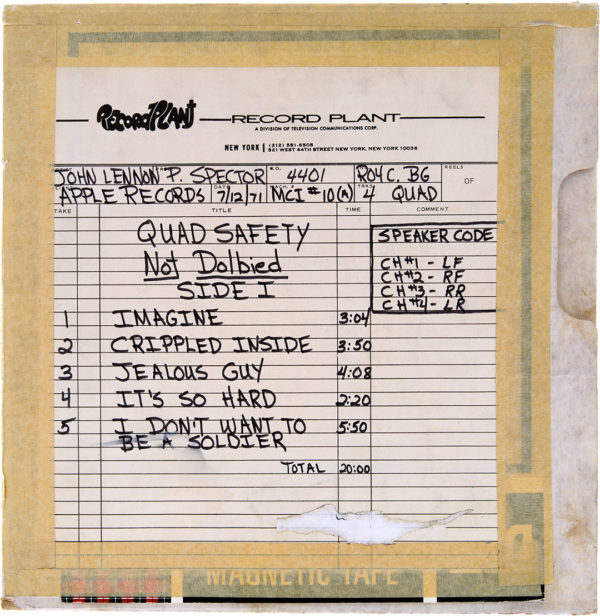 RECORD PLANT
RECORD PLANT
A DIVISION OF TELEVISION COMMUNICATIONS CORP.
NEW YORK | (212) 581-6505
321 WEST 44TH STREET NEW YORK, NEW YORK 10036
JOHN LENNON P. SPECTOR W.O. 4401 ROY C. BG REELS OF
APPLE RECORDS DATE 7/12/71 MACH. # MCI #10(A) TRKS 4 QUAD
TAKE TITLE TIME COMMENT
QUAD SAFETY
Not Dolbied
SIDE I
SPEAKER CODE
CH#1 - LF
CH#2 - RF
CH#3 - RR
CH#4 - LR
1 IMAGINE 3:04
2 CRIPPLED INSIDE 3:50
3 JEALOUS GUY 4:08
4 IT'S SO HARD 2:20
5 I DON'T WANT TO 5:50
BE A SOLDIER
TOTAL 20:00
MAGNETIC TAPE